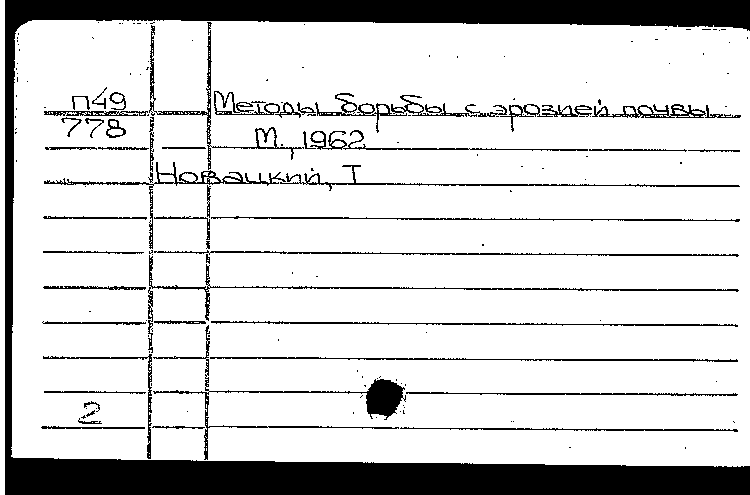 П49 Методы борьбы с эрозией почвы
778 М., 1962
Новацкий, Т
2